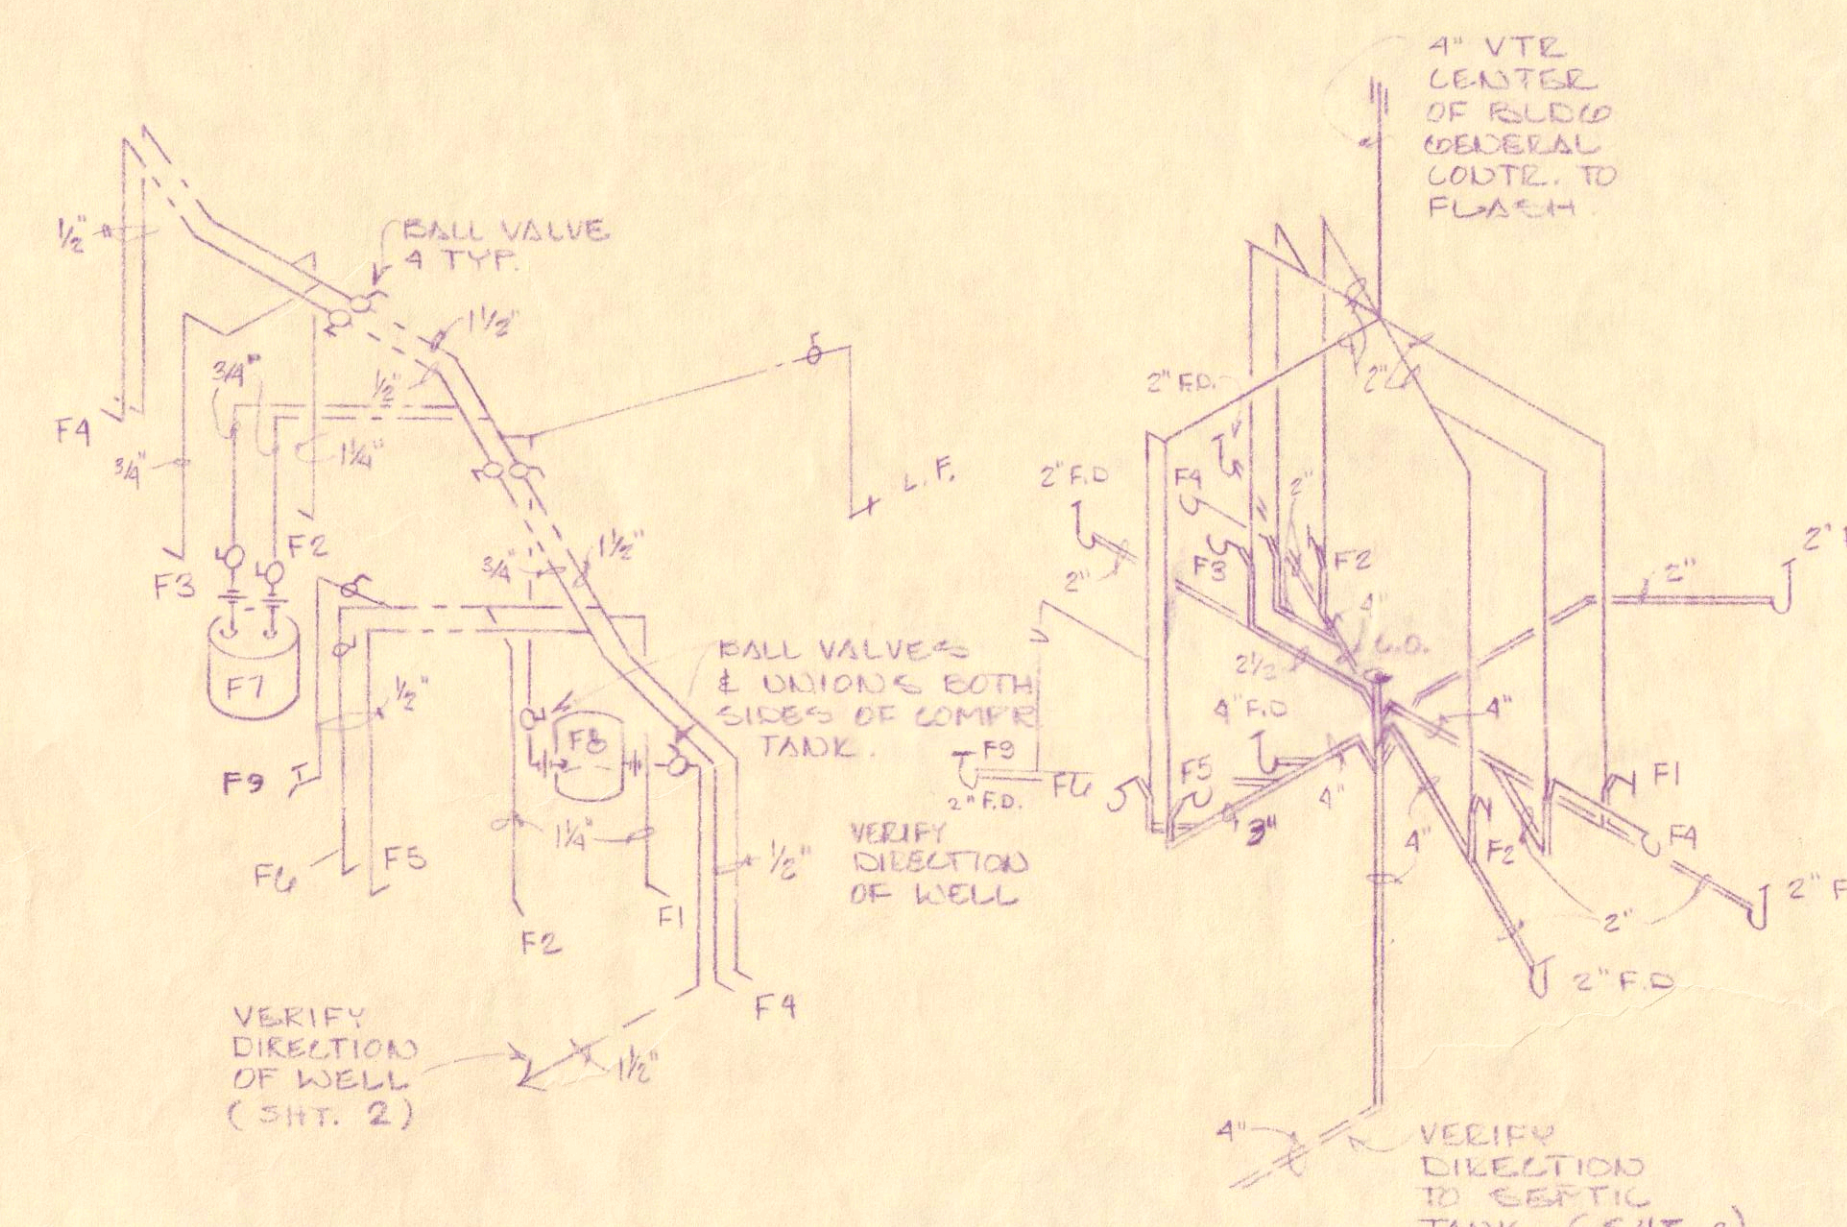 4" VTR
CENTER
OF BLDG
GENERAL
CONTR. TO
FLASH.
1/2"
BALL VALVE
4 TYP.
1 1/2"
3/4"
1/2"
F4
3/4"
1 1/4"
L.F.
F2
F3
3/4
1 1/2"
F7
1/2"
F9
BALL VALVES
& UNIONS BOTH
SIDES OF COMP'R
TANK.
F8
1 1/4"
F6
F5
1/2"
F1
F2
F4
VERIFY
DIRECTION
OF WELL
VERIFY
DIRECTION
OF WELL
(SHT. 2)
1 1/2"
2" F.D.
2"
2" F.D
F4
2"
F3
F2
2"
4"
C.O.
2 1/2
2"
2"
4" F.D
4"
F9
2" F.D.
F6
F5
3"
4"
4"
F1
F4
F2
2"
2" F
2" F.D
4"
VERIFY
DIRECTION
TO SEPTIC
TANK. (SHT. 2)